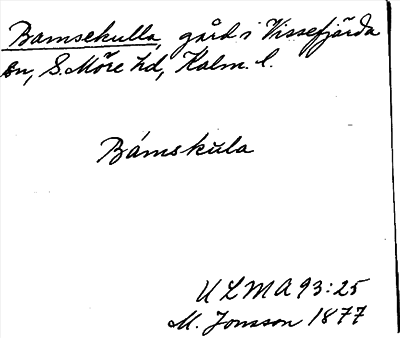 Bamsekulla, gård i Vissefjärda
sn, S. Möre hd, Kalm. l.
Bámskula
ULMA 93:25
M. Jonsson 1877